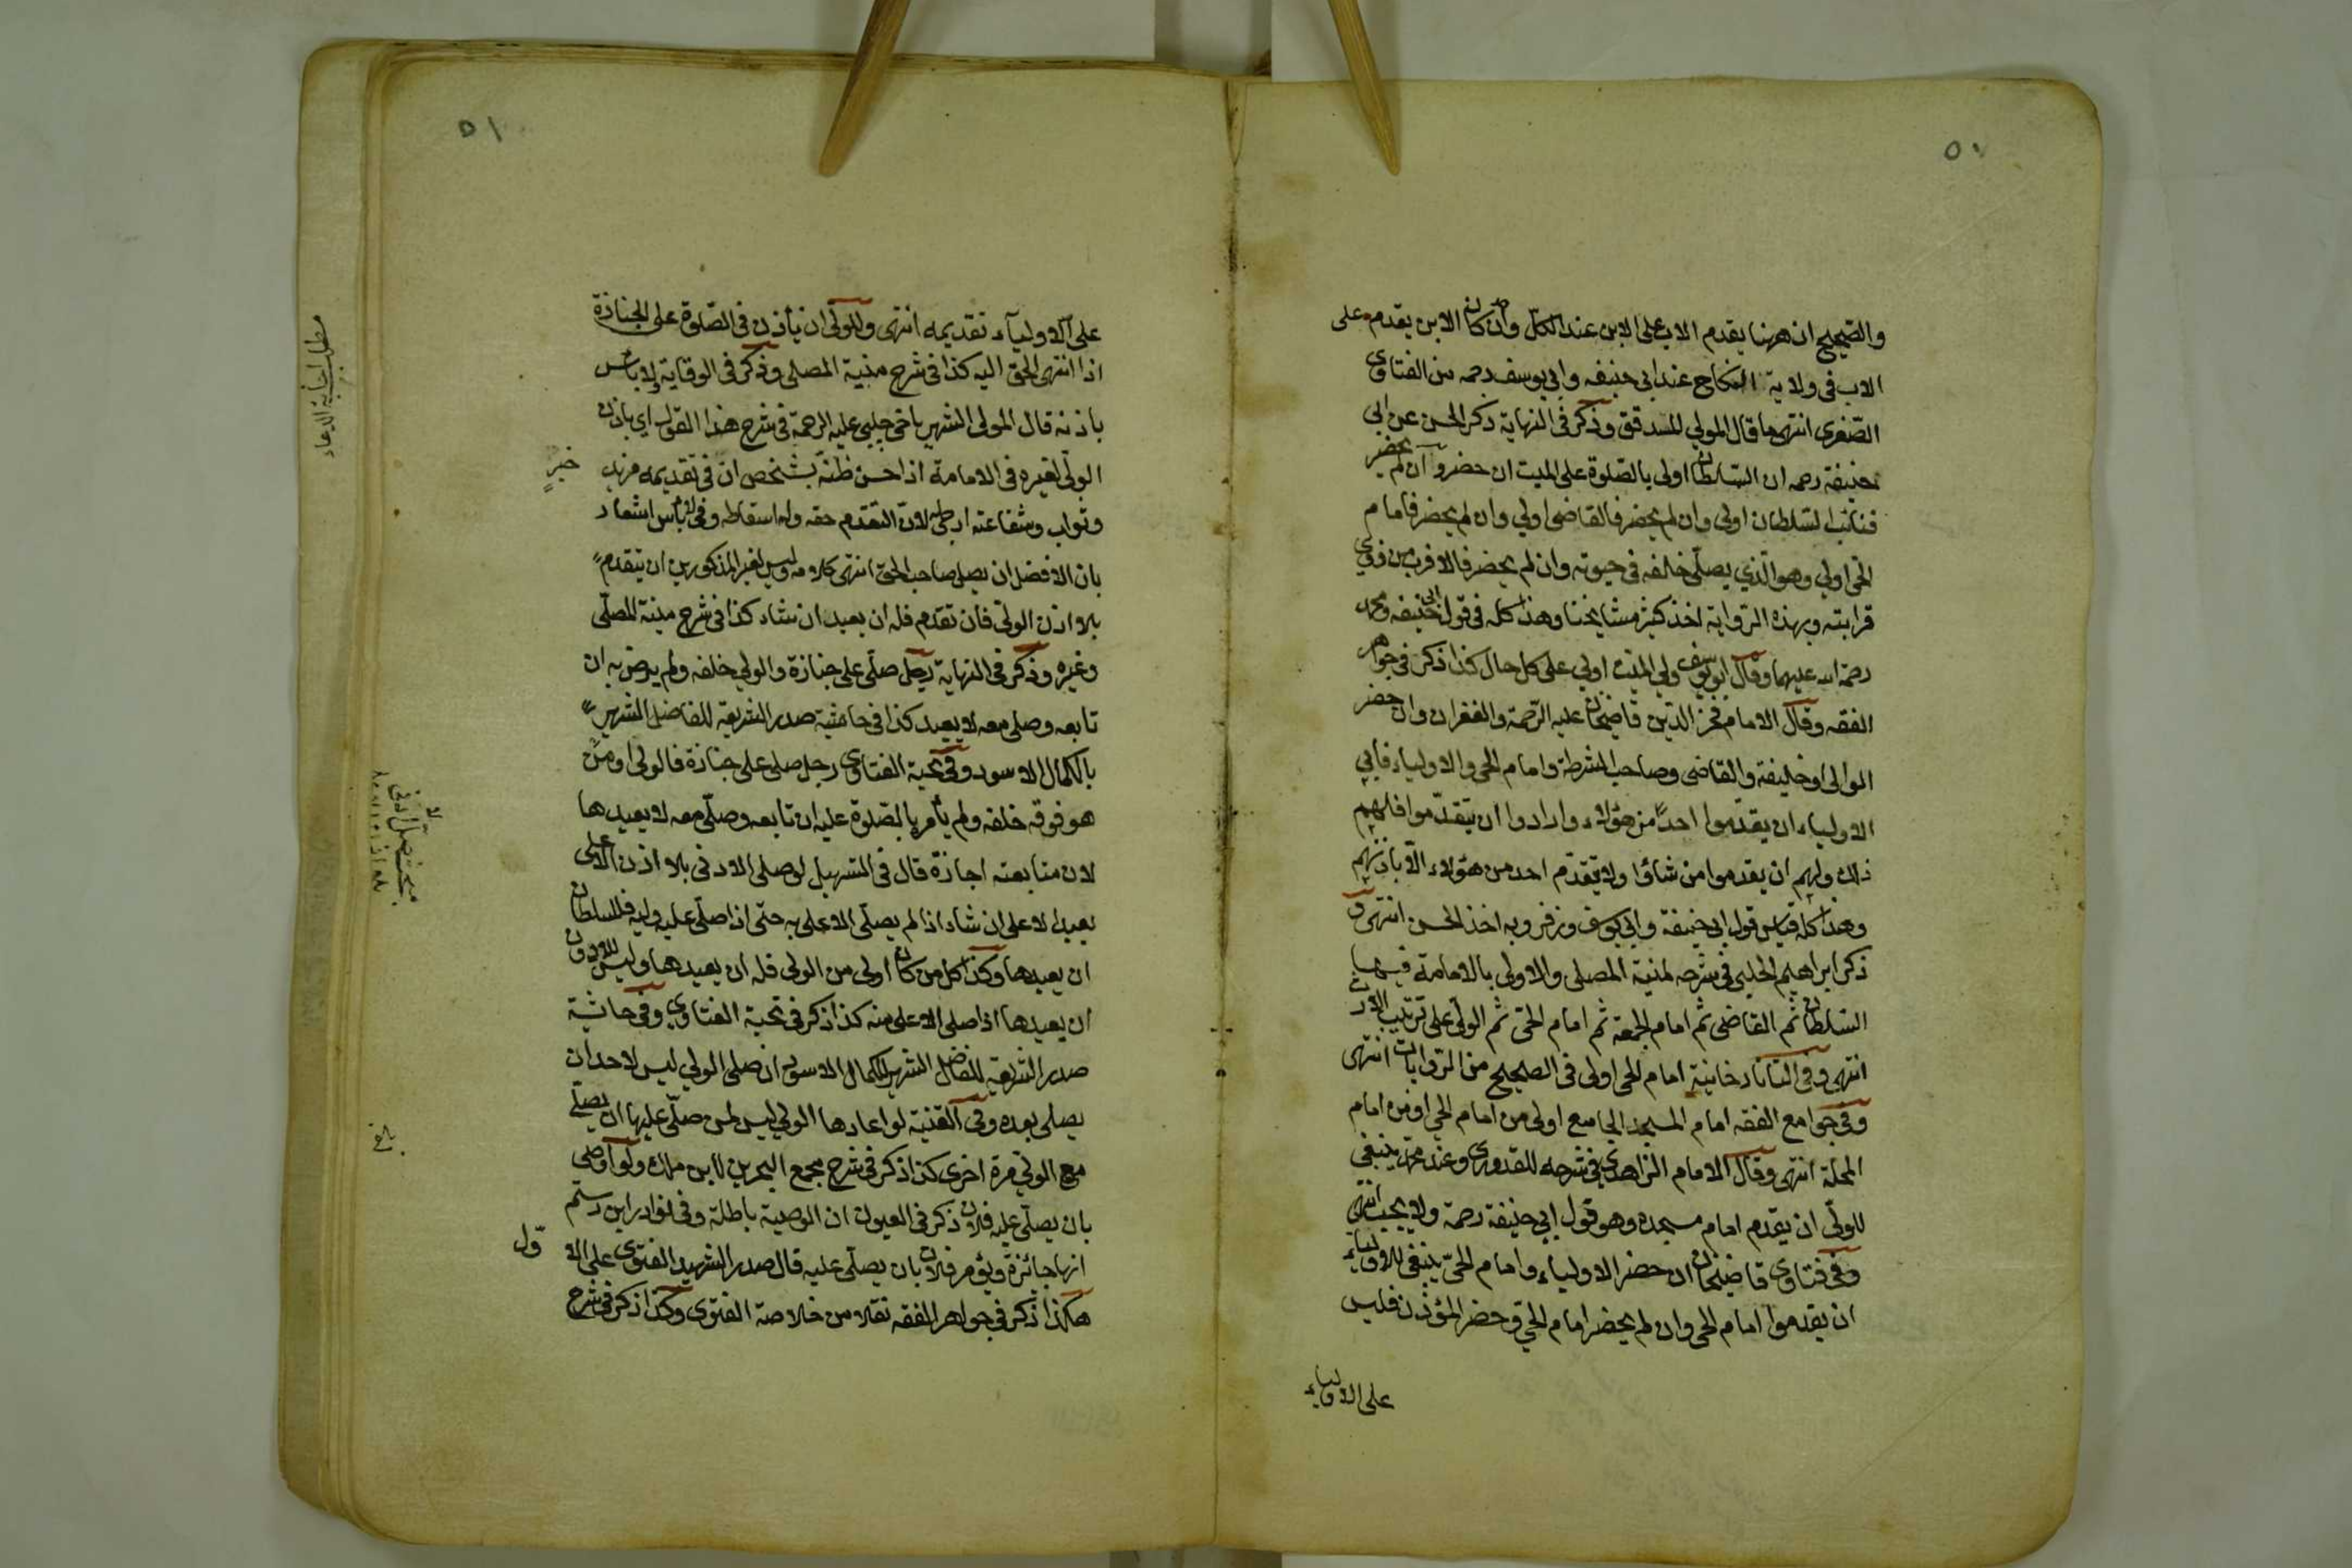 ٥٠
والصحيح ان ههنا يقدم الاب على الابن عند الكل وان كان الابن يقدم على
الاب في ولاية النكاح عند ابي حنيفه وابي يوسف رحمه من الفتاوى
الصغرى انتهى ما قال المولى وذكر في النهاية ذكر الحسن عن ابي
حنيفة رحمه ان السلطان اولى بالصلوة على الميت ان حضر وان لم يحضر
فنائب السلطان اولى وان لم يحضر فالقاضى اولي وان لم يحضر فامام
الحى اولي وهو الذي يصلى خلفه في حيوته وان لم يحضر فالاقرب من ذوي
قرابته وبهذه الرواية اخذ كثير مشايخنا وهذا كله في قول ابي حنيفه ومحمد
رحمة الله عليهما وقال ابو يوسف ولي الميت اولي على كل حال كذا ذكر في جواهر
الفقه وقال الامام فخر الدين قاضيخان عليه الرحمة والغفران وان حضر
الوالى او خليفته والقاضى وصاحب الشرطة وامام الحى والاولياء فابى
الاولياء ان يقدموا احدًا من هؤلاء وارادوا ان يتقدموا فلهم
ذلك ولهم ان يقدموا من شاؤا ولا يتقدم احد من هؤلاء الا باذنهم
وهذا كله قياس قول ابي حنيفة وابي يوسف وزفر وبه اخذ الحسن انتهى و
ذكر ابراهيم الحلبي في شرحه لمنية المصلى والاولى بالامامة فيها
السلطان ثم القاضى ثم امام الجمعة ثم امام الحى ثم الولى على ترتيب الارث
انتهى وفي التاتارخانية امام الحى اولى فى الصحيح من الروايات انتهى
وفي جوامع الفقه امام المسجد الجامع اولى من امام الحي او من امام
المحلة انتهى وقال الامام الزاهدى في شرحه للقدورى وعند محمد ينبغى
للولى ان يقدم امام مسجده وهو قول ابي حنيفة رحمة ولا يجب انتهى
وفي فتاوى قاضيخان ان حضر الاولياء وامام الحى ينبغى للاولياء
ان يقدموا امام الحى وان لم يحضر امام الحي وحضر المؤذن فليس
على الاولياء
٥١
على الاولياء تقديمه انتهى وللولى ان يأذن فى الصلوة على الجنازة
اذا انتهى الحق اليه كذا فى شرح منية المصلى وذكر فى الوقاية ولا باس
باذنه قال المولى الشهير باخى جلبي عليه الرحمة فى شرح هذا القول اي باذن
الولى لغيره فى الامامة اذا احسن ظنه بشخص ان فى تقديمه مزيد خيرٍ
وثواب وشفاعته ارجى لان التقدم حقه وله اسقاطه وفى لا باس اشعار
بان الافضل ان يصلى صاحب الحق انتهى كلامه وليس لغير المذكورين ان يتقدم
بلا اذن الولى فان تقدم فله ان يعيد ان شاء كذا فى شرح منية المصلى
وغيره وذكر فى النهاية رجل صلى على جنازة والولي خلفه ولم يرض به ان
تابعه وصلى معه لا يعيد كذا فى حاشية صدر الشريعة للفاضل الشهير
بالكمال الاسود وفى تحية الفتاوى رجل صلى على جنازة فالولى او من
هو فوقه خلفه ولم يأمر بالصلوة عليه ان تابعه وصلى معه لا يعيدها
لان متابعته اجازة قال فى التسهيل لو صلى الادنى بلا اذن الاعلى
يعيد الاعلى ان شاء اذا لم يصلى الاعلى به حتى اذا صلى عليه وليه فللسلطان
ان يعيدها وكذا كل من كان اولى من الولى فله ان يعيدها وليس للادون
ان يعيدها اذا صلى الاعلى منه كذا ذكر فى تحية الفتاوى وفى حاشية
صدر الشريعة للفاضل الشهير بالكمال الاسود ان صلى الولي ليس لاحد ان
يصلى بعده وفى القنية لو اعادها الولي ليس لمن صلى عليها ان يصلى
مع الولي مرة اخرى كذا ذكر فى شرح مجمع البحرين لابن ملك ولو اوصى
بان يصلى عليه فلان ذكر فى العيون ان الوصية باطلة وفى نوادر ابن رستم
انها جائزة ويؤمر فلان بان يصلى عليه قال صدر الشهيد الفتوى على الاوّل
هكذا ذكر فى جواهر الفقه نقلا من خلاصة الفتوى وكذا ذكر فى شرح